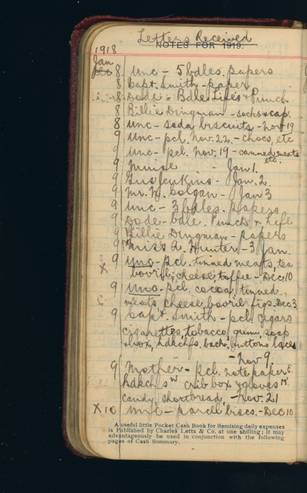 Letters Received
NOTES FOR 1919.
1918
Jan
8 Unc - 5 bdles. papers
8 Capt. Smith - paper
8 Dode - Bdle Lifes & Punch
8 Billie Dingman - socks & cap
8 Unc - soda biscuits - Nov 19
9 Unc - pcl. Nov. 22 - chocs, etc
9 Unc - pcl. Nov. 19 - canned meats etc.
9 Jan 1.
9 Jenkins - Jan. 2
9 Mr. Colgan - Jan 3
9 Unc - 3 bdles. papers
9 Dode - bdle. Punch & Life
9 Billie Dingman - papers
9 Miss A. Hunter - 3 Jan
9 Unc - pcl. tinned meats, tea
X bovril, cheese, toffee - Dec 10
9 Unc - pcl. cocoa, tinned
meats, cheese, bovril, figs. Dec 3
9 Capt. Smith - pcl. cigars
cigarettes, tobacco, gum, soap
& box, hdkchfs, buttons, laces
- Nov 9
9 Mother - pcl. note paper &
hdkchfs crib box & gloves
candy, shortbread, - Nov. 21
X 10 Unc - parcel biscs. - Dec 10
A useful little Pocket Cash Book for itemising daily expenses
is Published by Charles Letts & Co. at one shilling; it may
advantageously be used in conjunction with the following
pages of Cash Summary.